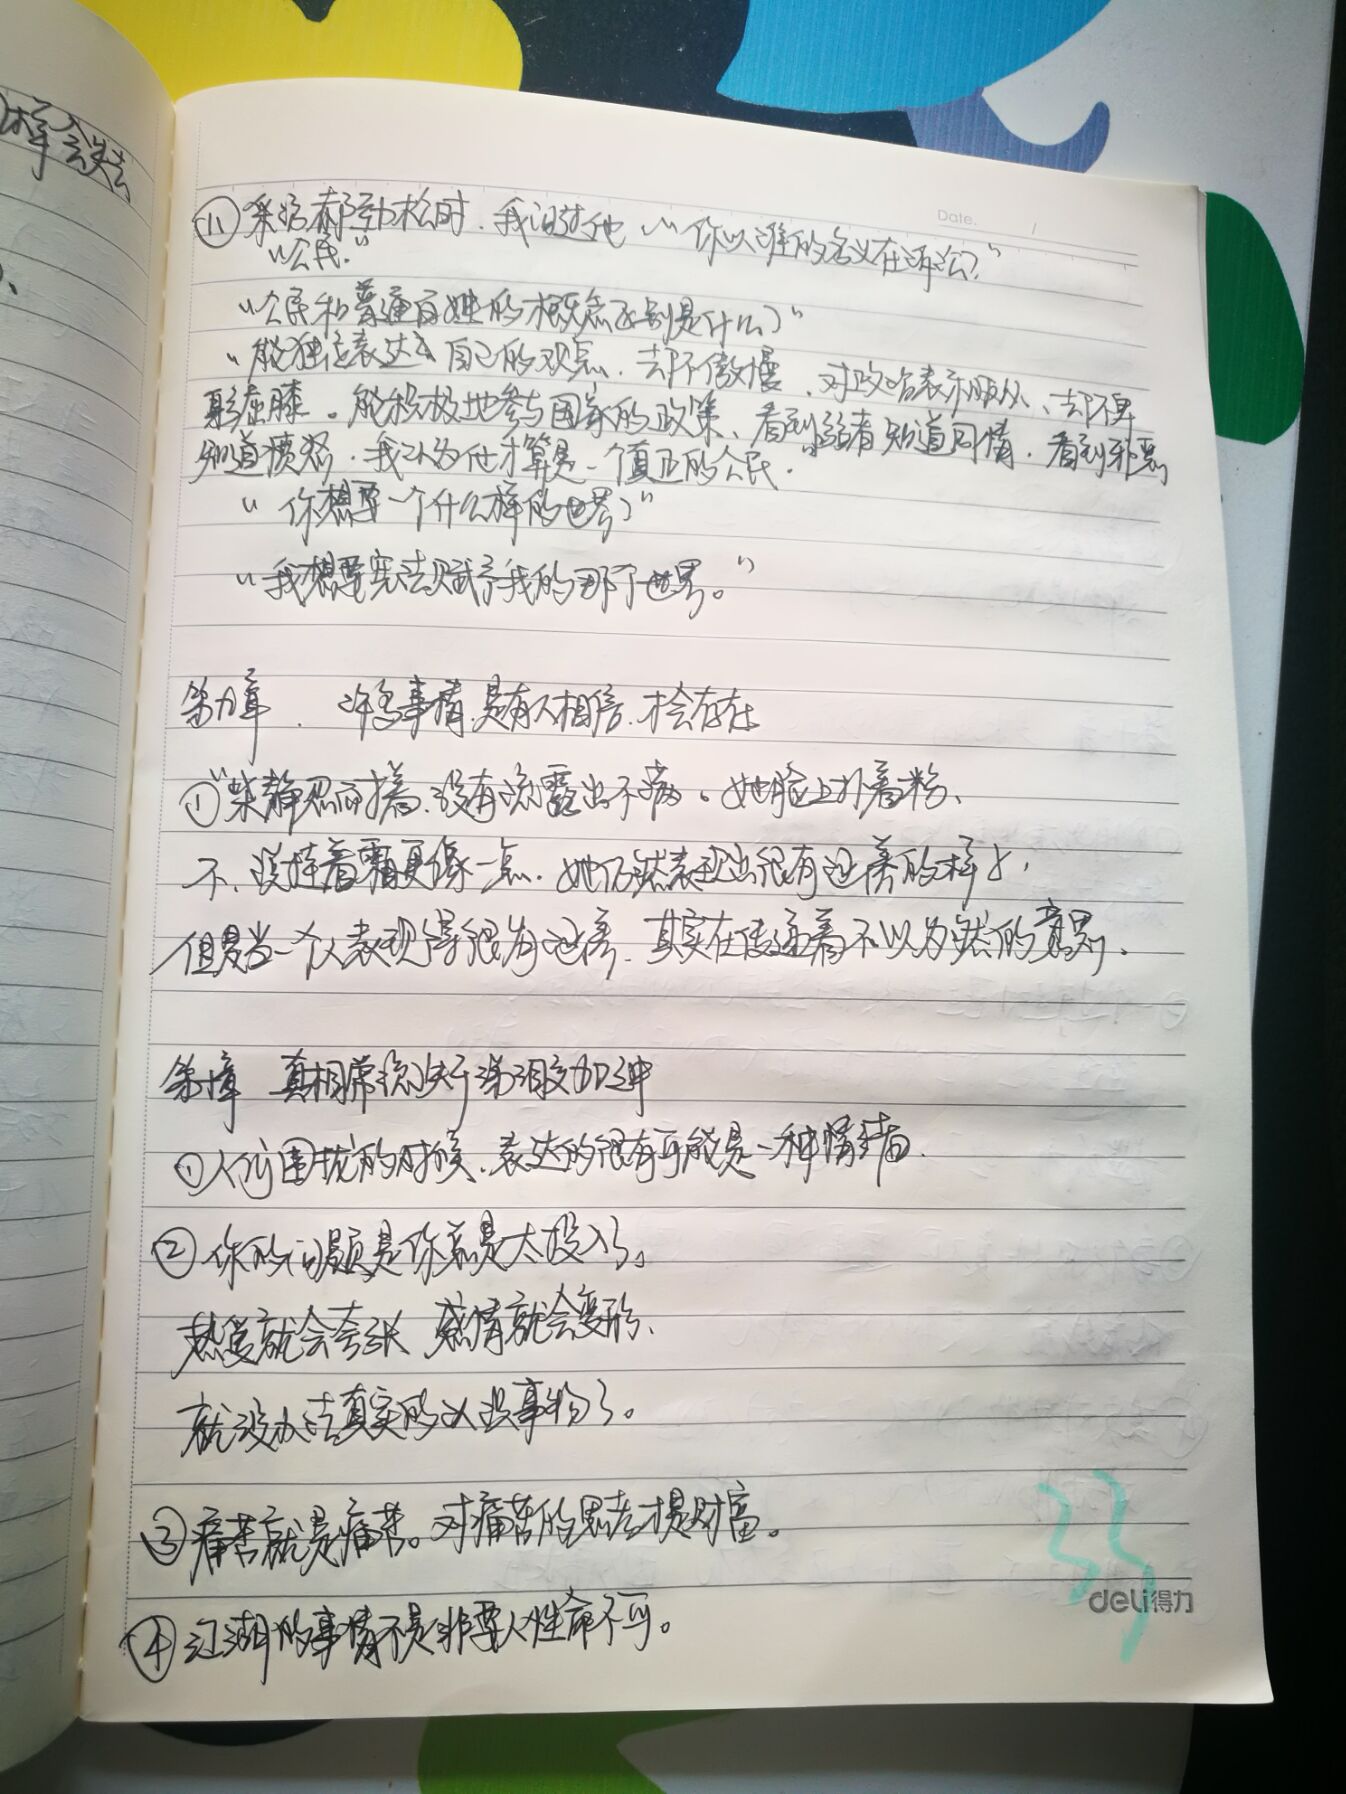 样会失去
Date.
⑪ 采访郝劲松时，我问过他“你以谁的名义在诉讼？”
“公民。”
“公民和普通百姓的概念区别是什么？”
“能独立表达自己的观点，却不傲慢，对政治表示服从，却不卑
躬屈膝。能积极地参与国家的政策，看到弱者知道同情，看到邪恶
知道愤怒，我认为他才算是一个真正的公民。”
“你想要一个什么样的世界？”
“我想要宪法赋予我的那个世界。”
第九章 许多事情，是有人相信，才会存在
①“柴静忍耐着，没有流露出不满。她脸上扑着粉，
不，没挂着霜更像一点，她仍然表现出很有过养的样子，
但是当一个人表现得很有过养，其实在传递着不以为然的意思。
第十章 真相常流失于涕泪交加中
①人们围扰的时候，表达的很有可能是一种情绪
②你的问题是你总是太投入了。
热爱就会夸张，感情就会变形，
就没办法真实的认识事物了。
③痛苦就是痛苦。对痛苦的思考才是财富。
④江湖的事情不是非要人性命不可。
33
deli得力